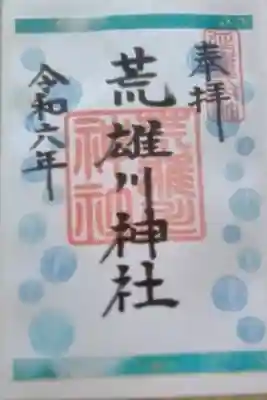 奉拝
荒雄川神社
令和六年